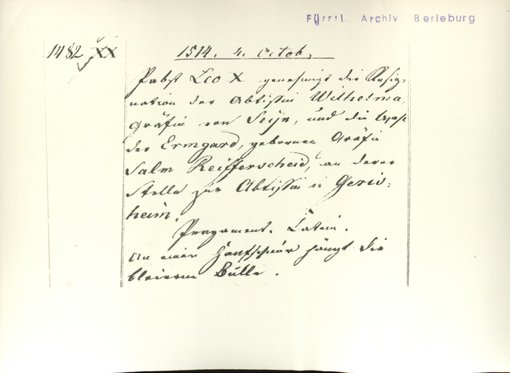 Fürstl. Archiv Berleburg
1482 XX
1514. 4. Octob.
Pabst Leo X genehmigt die Resig-
nation der Abtissin Wilhelma
Gräfin von Seyn, und die Wahl
der Ermgard, gebornen Gräfin
Salm Reifferscheid, an deren
Stelle zur Abtissin in Geris-
heim.
Pergament. Latein.
An einer Hanfschnur hängt die
bleierne Bulle.